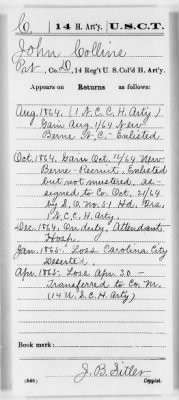 C | 14 H. Art'y. | U.S.C.T.
John Collins
Pvt., Co. D, 14 Reg't U. S. Col'd H. Art'y.
Appears on Returns as follows:
Aug. 1864, (1 N.C.C.H. Arty)
Gain Aug. 1/64 New
Berne N.C.- Enlisted
Oct. 1864, Gain Oct. 12/64 New
Berne- Recruit, Enlisted
but not mustered, as-
signed to Co. Oct. 21/64
by S.O. No. 51 Hd. Qrs.
1 N.C.C.H. Arty.
Dec. 1864, On duty, Attendant
Hosp.
Jan. 1865- Loss Carolina City
Deserted.
Apr. 1865- Loss Apr. 30-
Transferred to Co. M.
(14 U.S.C.H. Arty)
Book mark:
J. B. Sitler
(546) Copyist.